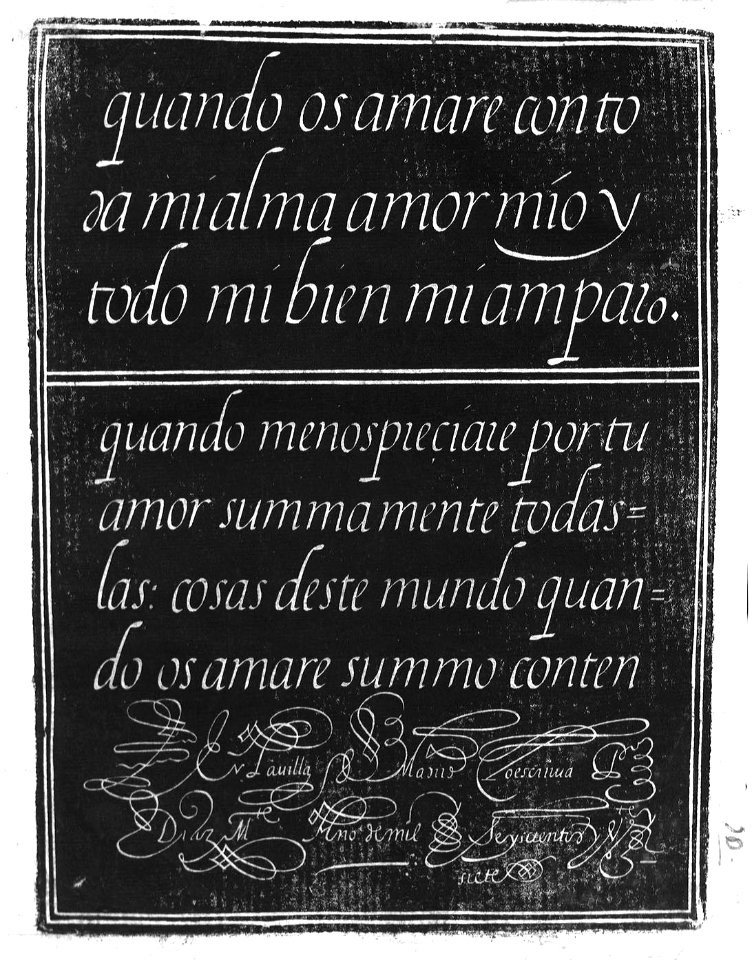 quando os amare con to
da mi alma amor mío y
todo mi bien mi amparo.
quando menospreciare por tu
amor summa mente todas=
las: cosas deste mundo quan=
do os amare summo conten
En la villa de Madrid lo escriuia Po
Diaz Mte Año de mil Seyscientos y
siete
20.